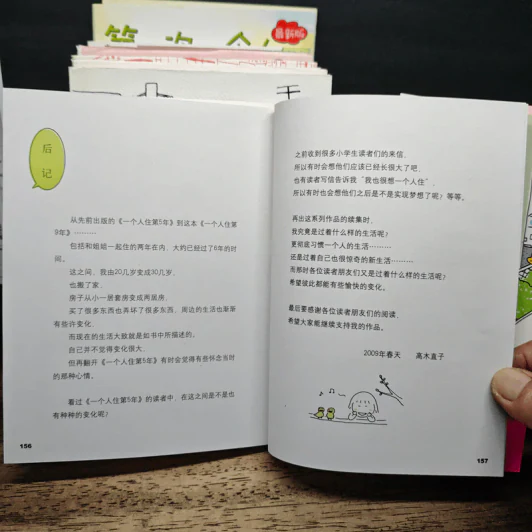 第 次 一个人
最新版
后记
从先前出版的《一个人住第5年》到这本《一个人住第
9年》………
包括和姐姐一起住的两年在内，大约已经过了6年的时
间。
这之间，我由20几岁变成30几岁，
也搬了家，
房子从小一居套房变成两居房，
买了很多东西也再坏了很多东西，周边的生活也渐渐
有些许变化，
而现在的生活大致就是如书中所描述的。
自己并不觉得变化很大，
但再翻开《一个人住第5年》有时会觉得有些怀念当时
的那种心情。
看过《一个人住第5年》的读者中，在这之间是不是也
有种种的变化呢？
156
之前收到很多小学生读者们的来信，
所以有时会想他们应该已经长很大了吧，
也有读者写信告诉我“我也很想一个人住”，
所以有时也会想他们之后是不是实现梦想了呢？等等。
再出这系列作品的续集时，
我究竟是过着什么样的生活呢？
更彻底习惯一个人的生活………
还是过着自己也很惊奇的新生活………
而那时各位读者朋友们又是过着什么样的生活呢？
希望彼此都能有些愉快的变化。
最后要感谢各位读者朋友们的阅读，
希望大家能继续支持我的作品。
2009年春天 高木直子
157